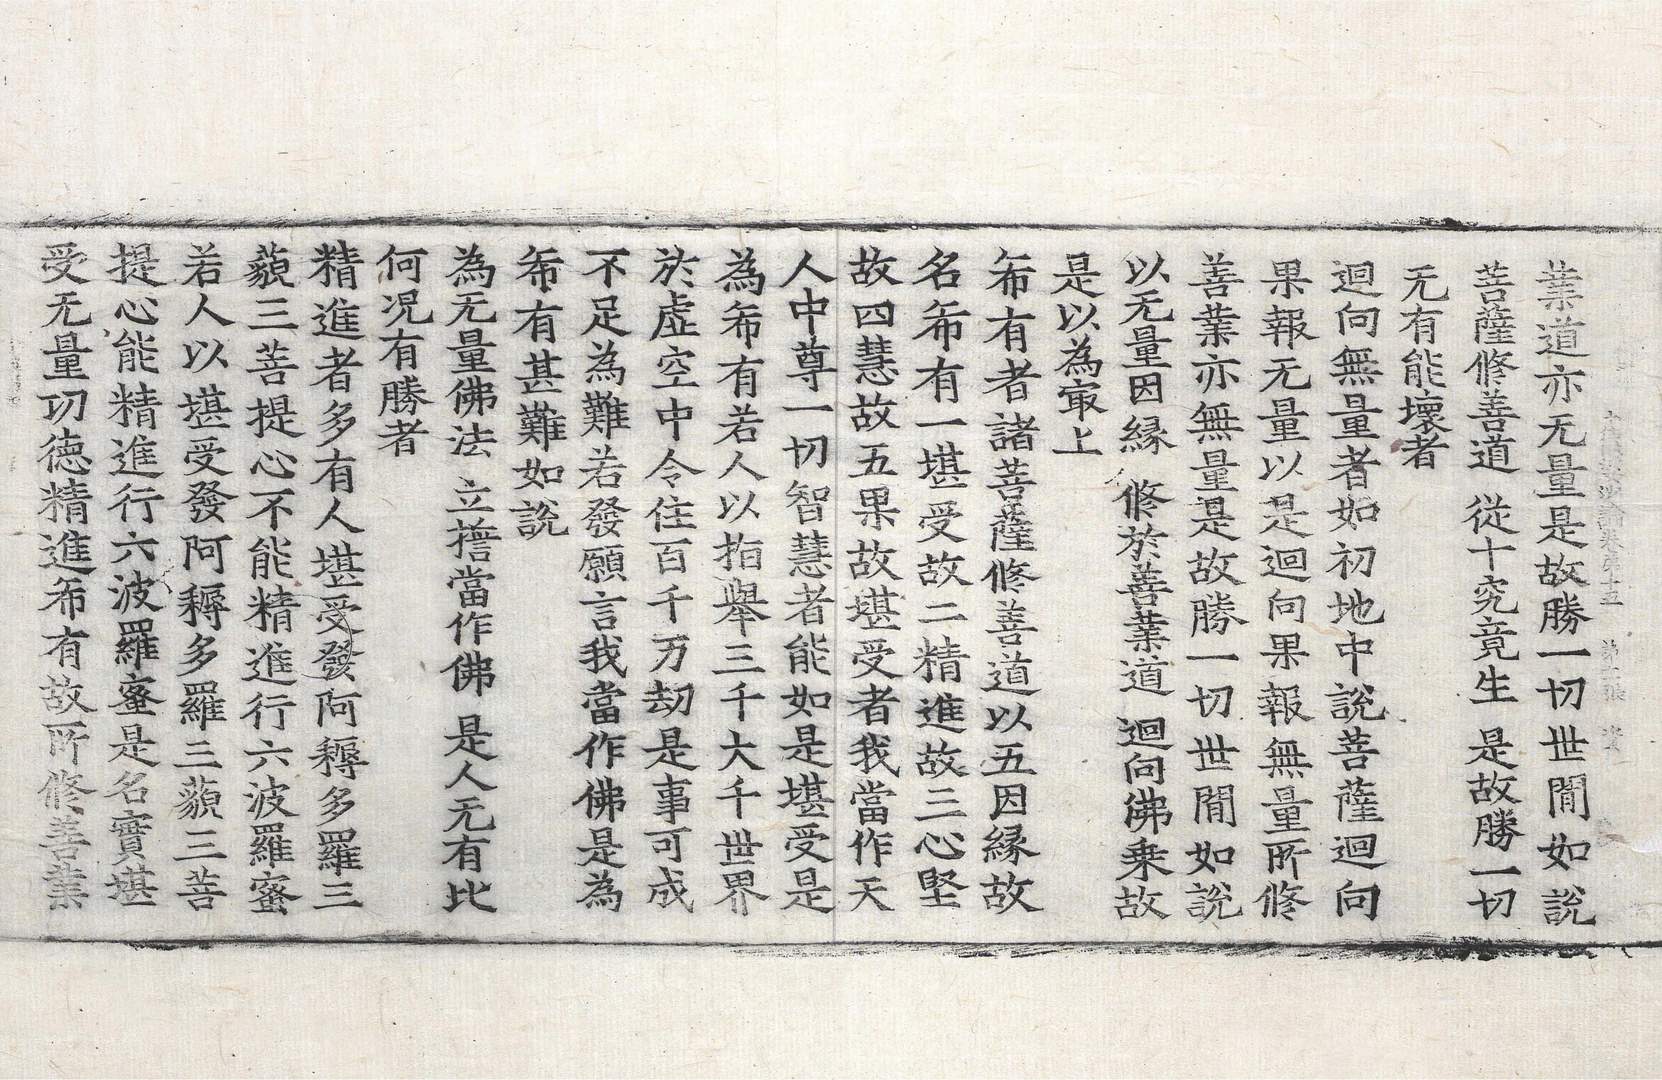 業道亦无量是故勝一切世間如說
菩薩修善道 從十究竟生 是故勝一切
无有能壞者
迴向無量者如初地中說菩薩迴向
果報无量以是迴向果報無量所修
善業亦無量是故勝一切世間如說
以无量因緣 修於善業道 迴向佛乘故
是以為㝡上
希有者諸菩薩修善道以五因緣故
名希有一堪受故二精進故三心堅
故四慧故五果故堪受者我當作天
人中尊一切智慧者能如是堪受是
為希有若人以指舉三千大千世界
於虛空中令住百千万劫是事可成
不足為難若發願言我當作佛是為
希有甚難如說
為无量佛法 立擔當作佛 是人无有比
何况有勝者
精進者多有人堪受發阿耨多羅三
藐三菩提心不能精進行六波羅蜜
若人以堪受發阿耨多羅三藐三菩
提心能精進行六波羅蜜是名實堪
受无量功德精進希有故所修善業